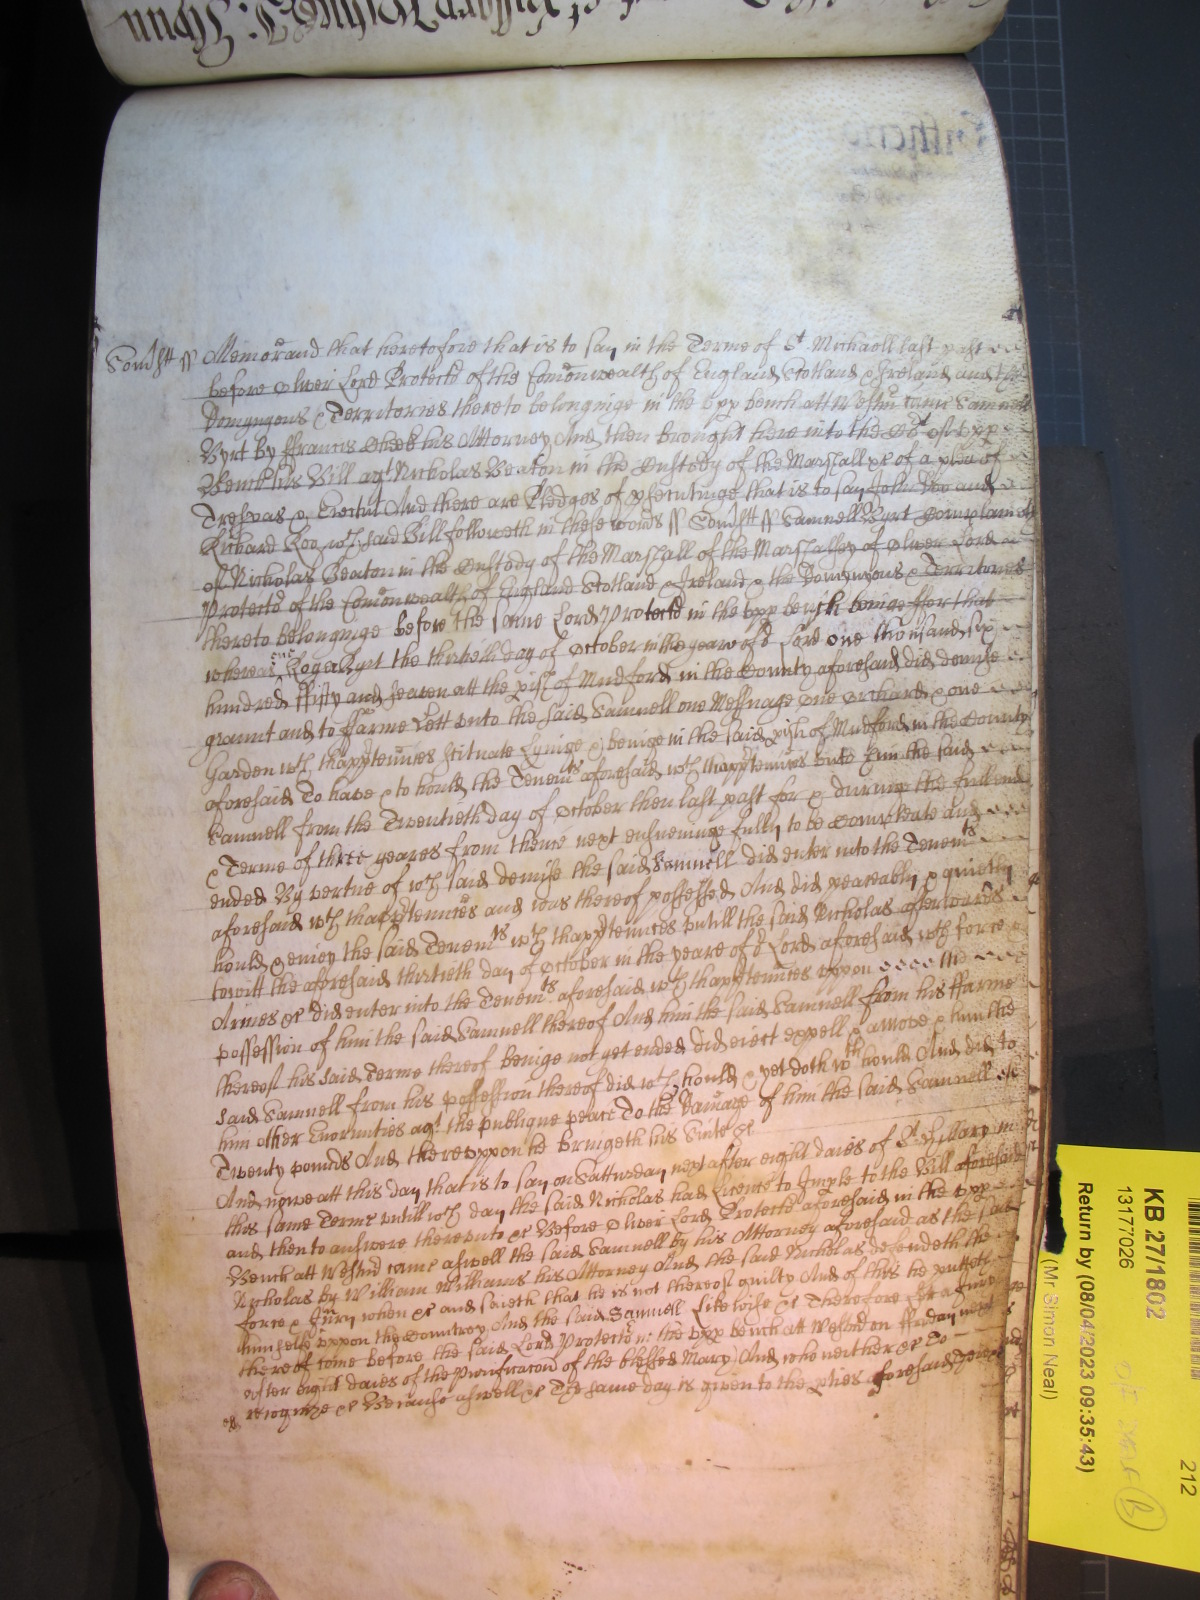 Somsett ss Memorand that heretofore that is to say in the Terme of St. Michaell last past
before Oliver Lord Protector of the Comonwealth of England Scotland & Ireland and the
Dominyons & Territories thereto belonginge in the upp bench att Westm came Samuell
Byrt by ffrancis Cheek his Attorney And then brought here into the Cort of the upp
Bench his Bill agt Nicholas Beaton in the Custody of the Marshall &c of a plea of
Trespas & Eiectmt And there are Pledges of psecutinge that is to say John Doo and
Richard Roo wch said Bill followeth in these words ss Somsett ss Samuell Byrt Complaineth
of Nicholas Beaton in the Custody of the Marshall of the Marshalsey of Oliver Lord
Protector of the Comonwealth of England Scotland & Ireland & the Dominyons & Territories
thereto belonginge before the same Lord Protector in the upp bench beinge ffor that
whereas one Roger Byrt the thirtieth day of October in the yeare of or Lord one thousand six
hundred ffifty and seaven att the pish of Mudford in the County aforesaid did demise
graunt and to ffarme Lett unto the said Samuell one Messuage one orchard & one
Garden wth thapptennces scituate Lyinge & beinge in the said pish of Mudford in the County
aforesaid To have & to hould the Tenemts aforesaid wth thapptennces unto him the said
Samuell from the Twentieth day of October then last past for & during the full end
& Terme of three yeares from thence next ensueinge fully to be Compleate and
ended By vertue of wch said demise the said Samuell did enter into the Tenemts
aforesaid wth thapptennces and was thereof possessed And did peaceably & quietly
hould & enioy the said Tenemts wth thapptennces untill the said Nicholas afterwards
towitt the aforesaid thirtieth day of October in the yeare of or Lord aforesaid wth force &
Armes &c did enter into the Tenemts aforesaid wth thapptennces uppon the
possession of him the said Samuell thereof And him the said Samuell from his ffarme
thereof his said Terme thereof beinge not yet ended did eiect expell & amove & him the
said Samuell from his possession thereof did wth hould & yet doth wth hould And did to
him other Enormities agt the publique peace To the Damage of him the said Samuell of
Twenty pounds And thereuppon he bringeth his Suite &c
And nowe att this day that is to say on Satturday next after eight daies of St. Hillary in
this same Terme untill wch day the said Nicholas had licence to Imple to the Bill aforesaid
and then to answere thereunto &c Before Oliver Lord Protector aforesaid in the upp
Bench att Westmr came aswell the said Samuell by his Attorney aforesaid as the said
Nicholas by William Williams his Attorney And the said Nicholas defendeth the
force & Iniury when &c and saieth that he is not thereof guilty And of this he putteth
himselfe uppon the Countrey And the said Samuell likewise &c Therefore let a Jury
thereof come before the said Lord Protector in the upp bench att Westmr on ffriday next
after eight daies of the Purificacon of the blessed Mary And who neither &c To
recognize &c Because aswell &c The same day is given to the pties aforesaid there
KB 27/1802
13177026
Return by (08/04/2023 09:35:43)
(Mr Simon Neal)
212
B